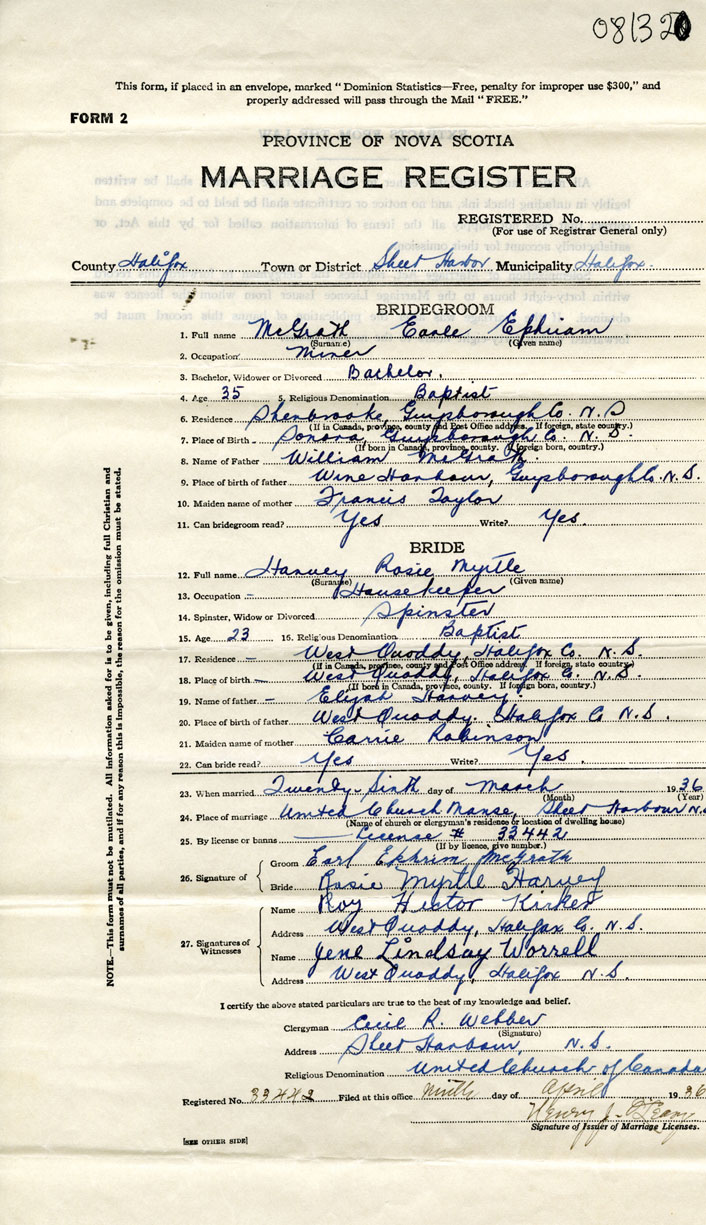 08132
This form, if placed in an envelope, marked "Dominion Statistics—Free, penalty for improper use $300," and
properly addressed will pass through the Mail "FREE."
FORM 2
PROVINCE OF NOVA SCOTIA
MARRIAGE REGISTER
REGISTERED No.
(For use of Registrar General only)
County Halifax Town or District Sheet Harbor Municipality Halifax.
BRIDEGROOM
1. Full name McGrath Earle Ephriam
(Surname) (Given name)
2. Occupation Miner
3. Bachelor, Widower or Divorced Bachelor.
4. Age 35 5. Religious Denomination Baptist
6. Residence Shenbrooke, Guysborough Co. N.S
(If in Canada, province, county and Post Office address. If foreign, state country.)
7. Place of Birth Sonora, Guysborough Co. N.S.
(If born in Canada, province, county. If foreign born, country.)
8. Name of Father William McGrath.
9. Place of birth of father Wine Harbour, Guysborough Co. N.S.
10. Maiden name of mother Francis Taylor
11. Can bridegroom read? Yes Write? Yes.
BRIDE
12. Full name Harvey Rosie Myrtle
(Surname) (Given name)
13. Occupation Housekeeper
14. Spinster, Widow or Divorced Spinster
15. Age 23 16. Religious Denomination Baptist
17. Residence West Quoddy, Halifax Co. N.S.
(If in Canada, province, county and Post Office address. If foreign, state country)
18. Place of birth West Quoddy, Halifax Co. N.S.
(If born in Canada, province, county. If foreign born, country.)
19. Name of father Elijah Harvey.
20. Place of birth of father West Quoddy. Halifax Co N.S.
21. Maiden name of mother Carrie Robinson
22. Can bride read? Yes Write? Yes.
23. When married Twenty-Sixth day of March 1936
(Month) (Year)
24. Place of marriage United Church Manse, Sheet Harbour N.
(Name of church or clergyman's residence or location of dwelling house)
25. By license or banns License # 33442
(If by licence, give number.)
26. Signature of
Groom Earl Ephrim McGrath
Bride Rosie Myrtle Harvey
27. Signatures of Witnesses
Name Roy Hector
Address West Quoddy, Halifax Co. N.S.
Name Jene Lindsay Worrell
Address West Quoddy, Halifax N.S.
NOTE.—This form must not be mutilated. All information asked for is to be given, including full Christian and
surnames of all parties, and if for any reason this is impossible, the reason for the omission must be stated.
I certify the above stated particulars are true to the best of my knowledge and belief.
Clergyman Cecil R. Webber
(Signature)
Address Sheet Harbour, N.S.
Religious Denomination United Church of Canada
Registered No. 33442 Filed at this office Ninth day of April 1936
Henry J.
Signature of Issuer of Marriage Licenses.
[SEE OTHER SIDE]